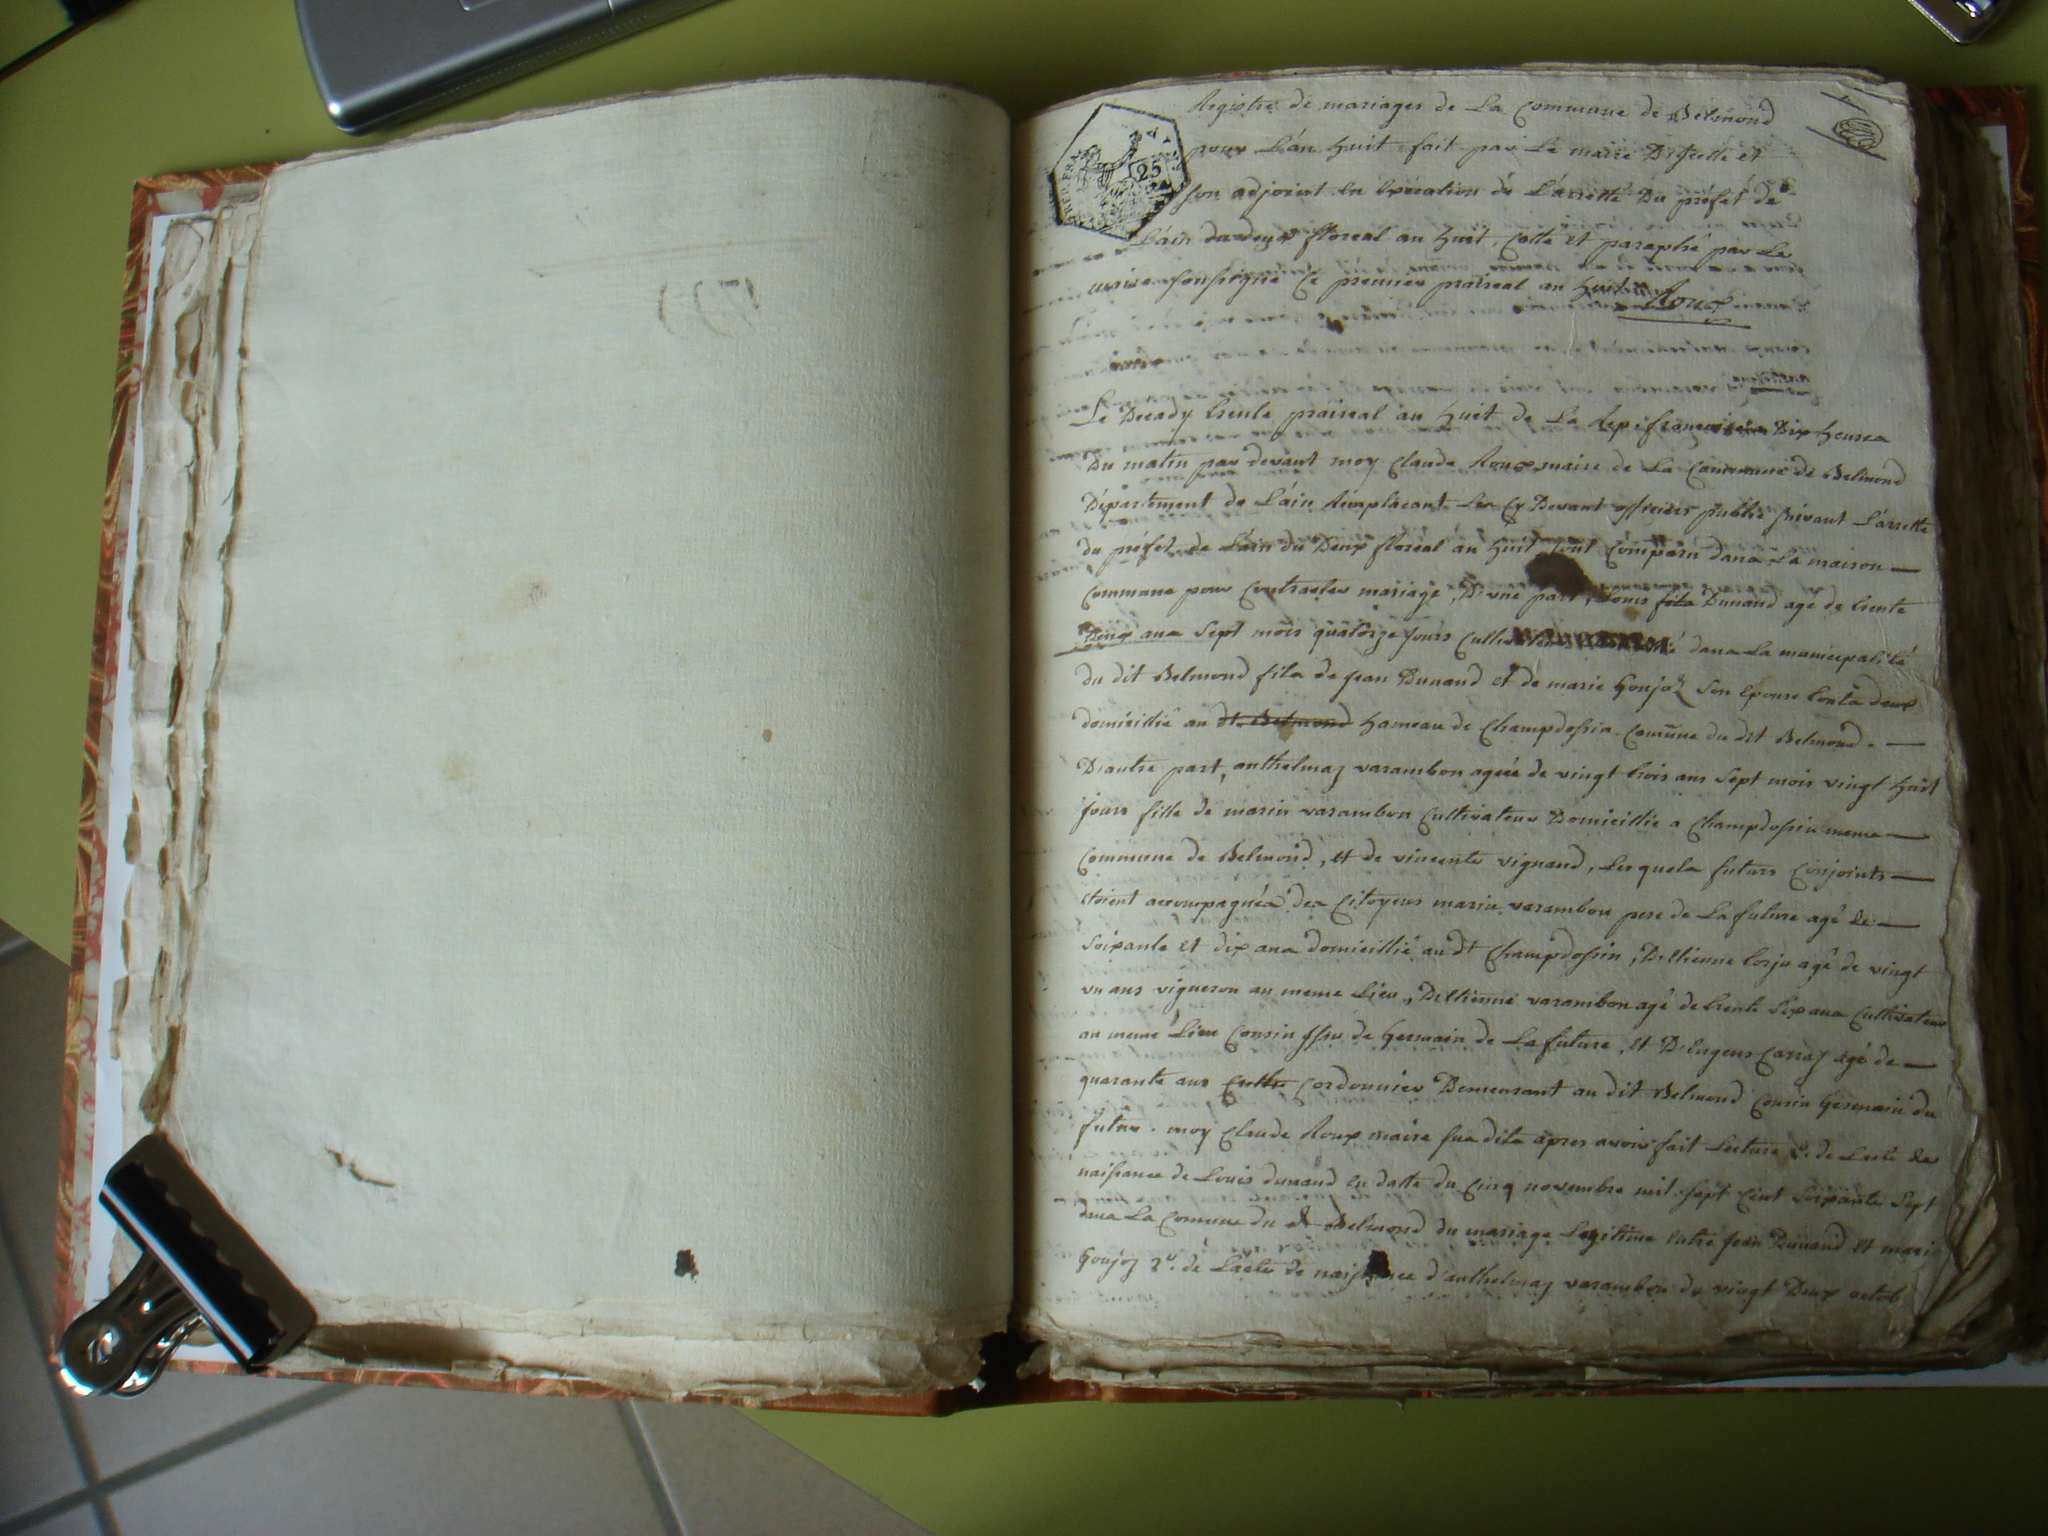 Registre de mariages de La Commune de Belmond
pour L'an huit, fait par Le maire D'icelle et
son adjoint en Execution de L'arretté Du préfét de
L'ain du deux floreal an huit, Cotté et paraphé par Le
maire sousigné Ce premier praireal an huit Roux
25
Le Decady trente praireal an huit de La rep. francaise Dix heures
Du matin par devant moy Claude Roux maire de La Commune de Belmond
Département de L'ain Remplacant Les Cy Devant officiers public suivant L'arretté
du préfet de L'ain du Deux floreal an huit sont Comparu dans La maison
Commune pour Contracter mariage, D'une part, Louis fils Dunand agé de trente
Deux ans Sept mois quatorze jours dans La municipalité
du dit Belmond fils de jean Dunand et de marie Goujoz Son Epouse touts deux
domicillié au dt Belmond hameau de Champdossin Comune du dit Belmond.
D'autre part, anthelmaz varambon agée de vingt trois ans Sept mois vingt huit
jours fille de marin varambon Cultivateur Domicillié a Champdossin meme
Commune de Belmond, et de vincente vignand, Lesquels futurs Conjoints
étoient accompagnés des Citoyens marin varambon pere de La future agé de
Soixante et dix ans domicillié au dt Champdossin, D'Etienne agé de vingt
un ans vigneron au meme Lieu, D'Etienne varambon agé de trente Six ans Cultivateur
au meme Lieu Cousin issu de Germain de La future, et D'Eugene Carraz agé de
quarante ans Culti Cordonnier Demeurant au dit Belmond Cousin Germain du
futur. moy Claude Roux maire sus dits apres avoir fait Lecture 1o. de L'acte de
naissance de Louis dunand en datte du Cinq novembre mil sept Cent Soixante Sept
dans La Comune du dt Belmond du mariage Legitime entre jean Dunand et marie
Goujoz 2o. de L'acte de naissance d'anthelmaz varambon du vingt Deux octob